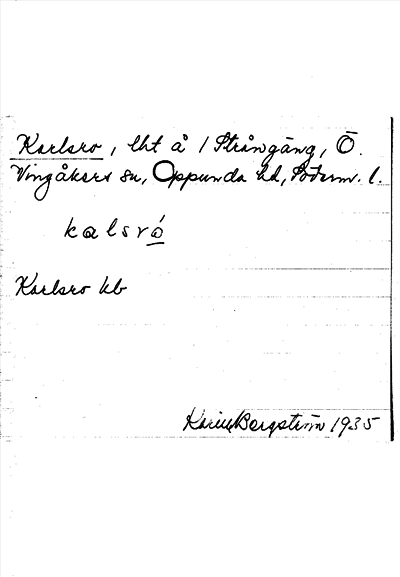 Karlsro, lht å 1 Strångäng, Ö.
Vingåkers sn, Oppunda hd, Söderm. l.
kalsró
Karlsro kb
Karin Bergström 1935